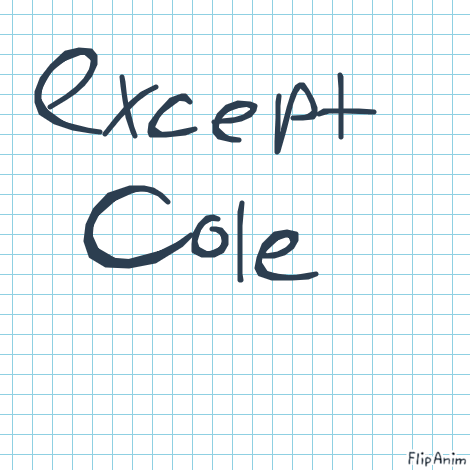 except
Cole
FlipAnim